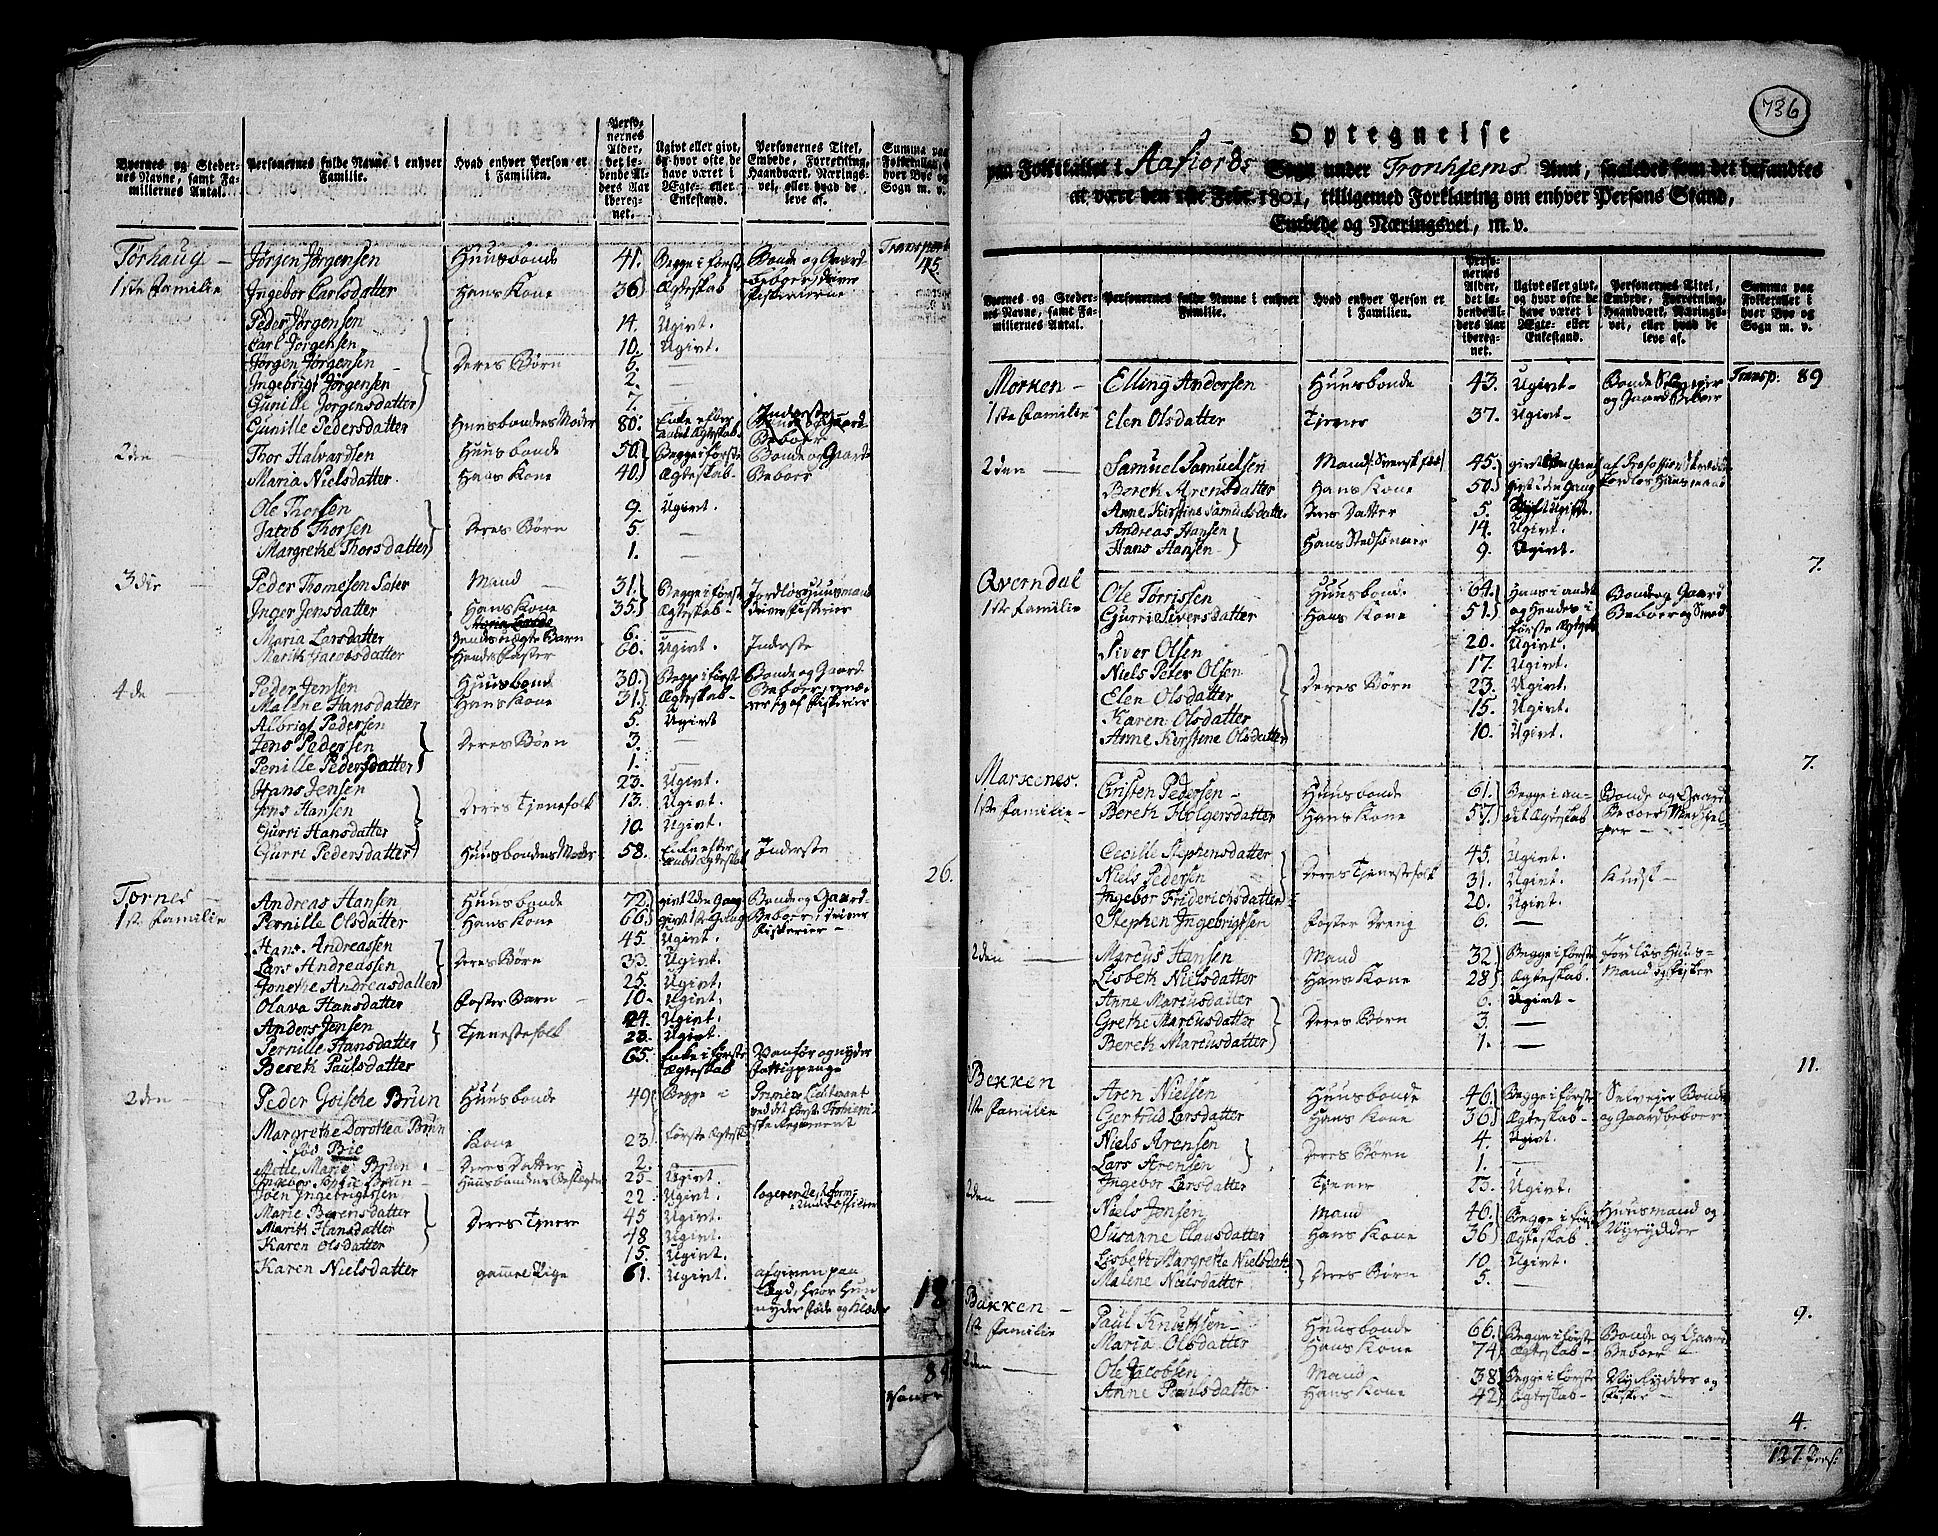 Byernes og Steder-
nes Navne, samt Fa-
miliernes Antal.
Personernes fulde Navne i enhver
Familie.
Hvad enhver Person er
i Familien.
Perso-
nernes
Alder,
det le-
bende Al-
ders Aar
iberegnet.
Ugivt eller givt,
og hvor ofte de
have været i
Ægte- eller
Enkestand.
Personernes Titel,
Embede, Forretning,
Haandværk, Nærings-
vei, eller hvad de
leve af.
Summa paa
Folketallet
hver Bye og
Sogn m. v.
Transport 45.
Tørhaug 1ste Familie Jørgen Jørgensen Huusbonde 41. Begge i første Bonde og Gaard-
Ingebor Carlsdatter Hans Kone 36 Ægteskab
Peder Jørgensen 14. Ugivt.
Carl Jørgensen 10. Ugivt.
Jørgen Jørgensen Deres Børn 5.
Ingebrigt Jørgensen 2.
Gunille Jørgensdatter 7.
Gunille Pedersdatter Huusbondens Moder 80. Enke efter andet Ægteskab
2den Thor Halvardsen Huusbonde 50 Begge i første Bonde og Gaard
Maria Nielsdatter Hans Kone 40. Ægteskab Beboer
Ole Thorsen 9. Ugivt.
Jacob Thorsen Deres Børn 5.
Margrethe Thorsdatter 1.
3die Peder Thomesen Mand 31. Begge i første Jordløs Huusmand
Inger Jensdatter Hans Kone 35. Ægteskab
Maria Larsdatter Hendes uægte Barn 6.
Marith Jacobsdatter Hendes Søster 60. Ugivt. Inderste
4de Peder Jensen Huusbonde 30. Begge i første Bonde og Gaard
Malene Hansdatter Hans Kone 31. Ægteskab Beboer
Albrigt Pedersen 5. Ugivt
Jens Pedersen Deres Børn 3.
Penille Pedersdatter 1.
Hans Jensen 23. Ugivt.
Jens Hansen Deres Tjenefolk 13. Ugivt.
Gurri Hansdatter 10. Ugivt.
Gurri Pedersdatter Huusbondens Moder 58. Enke efter andet Ægteskab Inderste
26.
Tørnes 1ste Familie Andreas Hansen Huusbonde 72 givt 2den Gang Bonde og Gaard-
Pernille Olsdatter Hans Kone 66 givt 1ste Gang Beboer, driver
Hans Andreassen 45. Ugivt. Fiskerier
Lars Andreassen Deres Børn 33. Ugivt.
Jonethe Andreasdatter 25. Ugivt.
Olava Hansdatter Foster Barn 10 Ugivt.
Anders Jensen Tjenestefolk 24. Ugivt.
Pernille Hansdatter 23. Ugivt.
Bereth Paulsdatter 65. Enke i første Ægteskab Vanfør og nyder Fattigpenge
2den Peder Goische Brun Huusbonde 49 Begge i Premier Lieutenant
Margrethe Dorothea Brun Kone 23 første Ægtesk.
fød Brie
Mette Marie Brun Deres Datter 2.
25 Ugivt.
Joen Ingebrigtssen 22 Ugivt.
Marie Berensdatter Deres Tjenere 45 Ugivt.
Marith Hansdatter 48 Ugivt.
Karen Olsdatter 15. Ugivt.
Karen Nielsdatter gammel Pige 61. Ugivt. afgiven paa
Lægd, hvor hun
nyder Føde og Klæder
18
89
736
Optegnelse
paa Folketallet i Aafiords Sogn under Tronhjems Amt, saaledes som det befandtes
at være den 1ste Febr. 1801, tilligemed Forklaring om enhver Persons Stand,
Embede og Næringsvei, m. v.
Byernes og Steder-
nes Navne, samt Fa-
miliernes Antal.
Personernes fulde Navne i enhver
Familie.
Hvad enhver Person er
i Familien.
Perso-
nernes
Alder,
det le-
bende Al-
ders Aar
iberegnet.
Ugivt eller givt,
og hvor ofte de
have været i
Ægte- eller
Enkestand.
Personernes Titel,
Embede, Forretning,
Haandværk, Nærings-
vei, eller hvad de
leve af.
Summa paa
Folketallet i
hver Bye og
Sogn m. v.
Morken 1ste Familie Elling Andersen Huusbonde 43. Ugivt Bonde Selvejer og Gaard Beboer Transp: 89
Elen Olsdatter Tjener 37. Ugivt
2den Samuel Samuelsen Mand 45. givt
Bereth Arensdatter Hans Kone 50. givt 2den Gang
Anne Kirstine Samuelsdatter Deres Datter 5.
Andreas Hansen 14. Ugivt.
Hans Hansen Hans Stedsønner 9. Ugivt.
7.
Qverndal 1ste Familie Ole Torrissen Huusbonde 64. Hans i andet Bonde og Gaard
Gurri Siversdatter Hans Kone 51. og Hendes i Beboer og Smed
første Ægtesk.
Siver Olsen 20. Ugivt.
Niels Peter Olsen 17. Ugivt.
Elen Olsdatter Deres Børn 23. Ugivt.
Karen Olsdatter 15. Ugivt.
Anne Kirstene Olsdatter 10. Ugivt.
7.
Markenes. 1ste Familie Cristen Pedersen Huusbonde 61. Begge i an- Bonde og Gaard
Bereth Holgersdatter Hans Kone 57. det Ægteskab Beboer
Cecille Stephensdatter 45. Ugivt.
Niels Pedersen Deres Tjenestefolk 31. Ugivt. Kudsk
Ingebor Friderichsdatter 20. Ugivt.
Stephen Ingebrigtsen Foster Dreng 6.
2den Marcus Hansen Mand 32. Begge i første Jordløs Huus-
Lisbeth Nielsdatter Hans Kone 28 Ægteskab Mand og Fisker
Anne Marcusdatter 6. Ugivt
Grethe Marcusdatter Deres Børn 3.
Bereth Marcusdatter 1.
11.
Bekken 1ste Familie Aren Nielsen Huusbonde 46 Begge i første Selvejer Bonde
Gertrud Larsdatter Hans Kone 36 Ægteskab og Gaardbeboer
Niels Arensen Deres Børn 4. Ugivt.
Lars Arensen 1.
Ingebor Larsdatter Tjener 13. Ugivt.
2den Niels Jensen Mand 46. Begge i første Huusmand og
Susanne Clausdatter Hans Kone 36 Ægteskab Nyrydder
Lisbeth Margrethe Nielsdatt. Deres Børn 10 Ugivt.
Malene Nielsdatter 5.
9.
Bakken 1ste Familie Paul Knuttsen Huusbonde 66. Begge i første Bonde og Gaard
Maria Olsdatter Hans Kone 74 Ægteskab Beboer
2den Ole Jacobsen Mand 38 Begge i første Nyrydder og
Anne Paulsdatter Hans Kone 42 Ægteskab Fisker
4.
127. Pers: